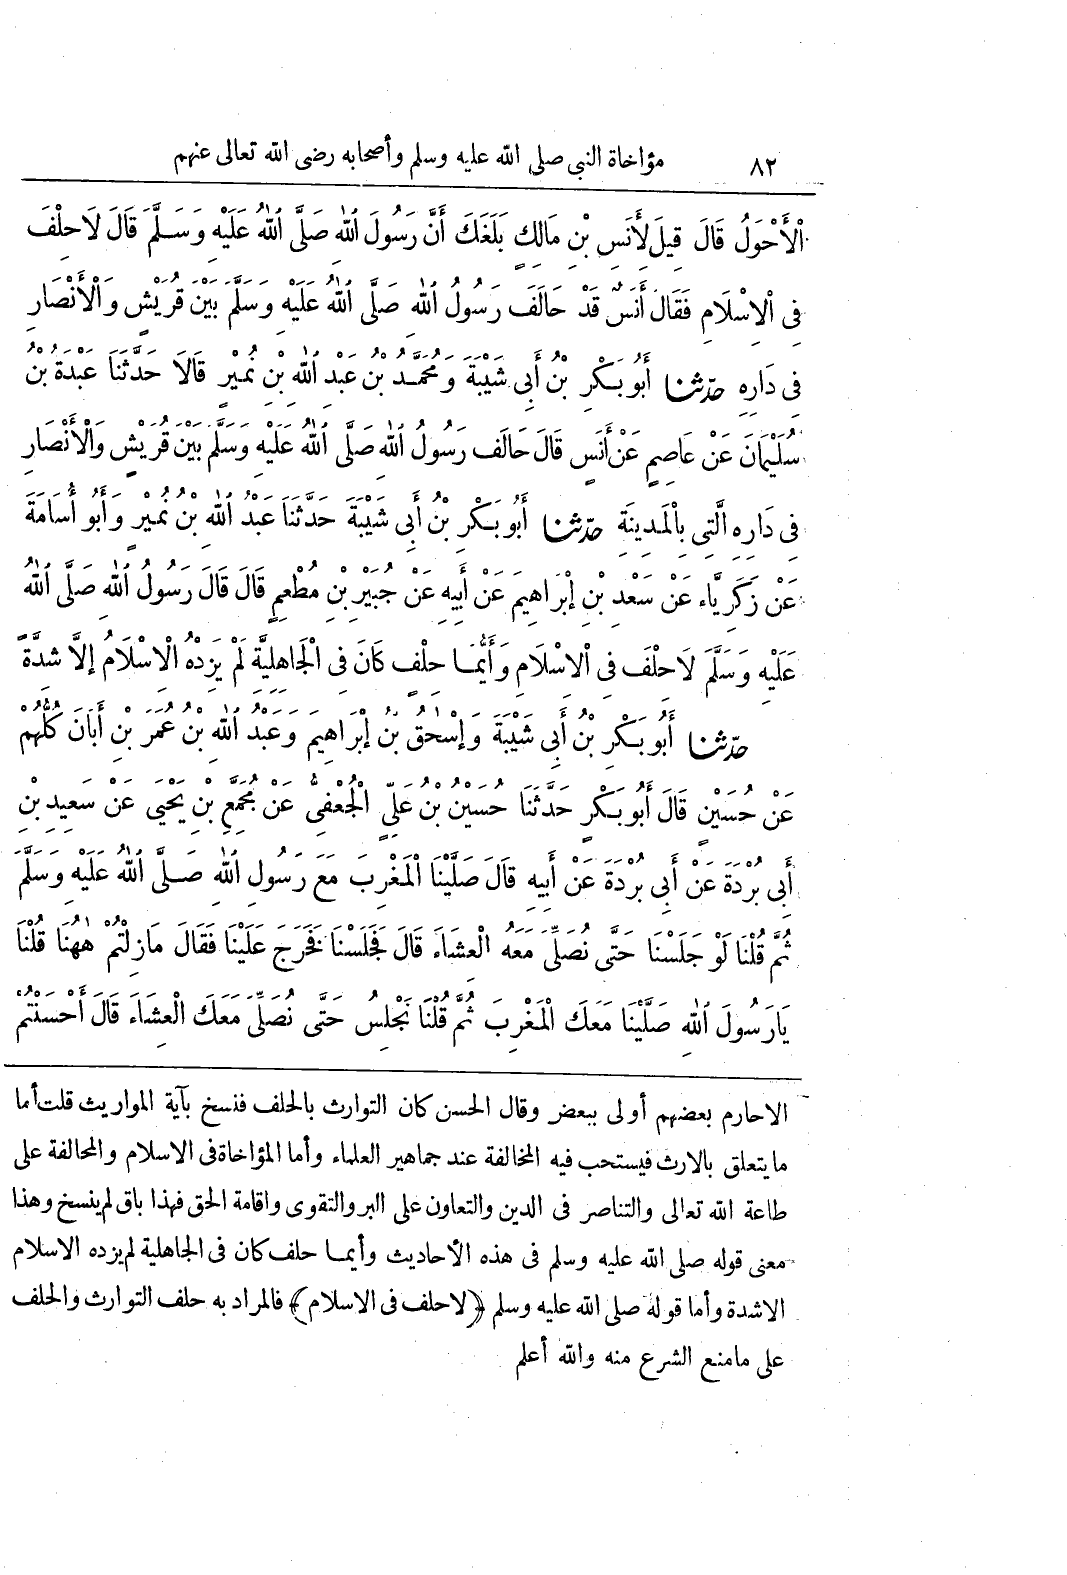 ٨٢ مؤاخاة النبى صلى الله عليه وسلم وأصحابه رضى الله تعالى عنهم
ٱلْأَحْوَلُ قَالَ قِيلَ لِأَنَسِ بْنِ مَالِكٍ بَلَغَكَ أَنَّ رَسُولَ ٱللهِ صَلَّى ٱللهُ عَلَيْهِ وَسَلَّمَ قَالَ لَا حِلْفَ
فِى ٱلْإِسْلَامِ فَقَالَ أَنَسٌ قَدْ حَالَفَ رَسُولُ ٱللهِ صَلَّى ٱللهُ عَلَيْهِ وَسَلَّمَ بَيْنَ قُرَيْشٍ وَٱلْأَنْصَارِ
فِى دَارِهِ حدّثنا أَبُو بَكْرِ بْنُ أَبِى شَيْبَةَ وَمُحَمَّدُ بْنُ عَبْدِ ٱللهِ بْنِ نُمَيْرٍ قَالَا حَدَّثَنَا عَبْدَةُ بْنُ
سُلَيْمَانَ عَنْ عَاصِمٍ عَنْ أَنَسٍ قَالَ حَالَفَ رَسُولُ ٱللهِ صَلَّى ٱللهُ عَلَيْهِ وَسَلَّمَ بَيْنَ قُرَيْشٍ وَٱلْأَنْصَارِ
فِى دَارِهِ ٱلَّتِى بِٱلْمَدِينَةِ حدّثنا أَبُو بَكْرِ بْنُ أَبِى شَيْبَةَ حَدَّثَنَا عَبْدُ ٱللهِ بْنُ نُمَيْرٍ وَأَبُو أُسَامَةَ
عَنْ زَكَرِيَّاءَ عَنْ سَعْدِ بْنِ إِبْرَاهِيمَ عَنْ أَبِيهِ عَنْ جُبَيْرِ بْنِ مُطْعِمٍ قَالَ قَالَ رَسُولُ ٱللهِ صَلَّى ٱللهُ
عَلَيْهِ وَسَلَّمَ لَا حِلْفَ فِى ٱلْإِسْلَامِ وَأَيُّمَا حِلْفٍ كَانَ فِى ٱلْجَاهِلِيَّةِ لَمْ يَزِدْهُ ٱلْإِسْلَامُ إِلَّا شِدَّةً
حدّثنا أَبُو بَكْرِ بْنُ أَبِى شَيْبَةَ وَإِسْحٰقُ بْنُ إِبْرَاهِيمَ وَعَبْدُ ٱللهِ بْنُ عُمَرَ بْنِ أَبَانَ كُلُّهُمْ
عَنْ حُسَيْنٍ قَالَ أَبُو بَكْرٍ حَدَّثَنَا حُسَيْنُ بْنُ عَلِىٍّ ٱلْجُعْفِىُّ عَنْ مُجَمِّعِ بْنِ يَحْيَى عَنْ سَعِيدِ بْنِ
أَبِى بُرْدَةَ عَنْ أَبِى بُرْدَةَ عَنْ أَبِيهِ قَالَ صَلَّيْنَا ٱلْمَغْرِبَ مَعَ رَسُولِ ٱللهِ صَلَّى ٱللهُ عَلَيْهِ وَسَلَّمَ
ثُمَّ قُلْنَا لَوْ جَلَسْنَا حَتَّى نُصَلِّىَ مَعَهُ ٱلْعِشَاءَ قَالَ فَجَلَسْنَا فَخَرَجَ عَلَيْنَا فَقَالَ مَا زِلْتُمْ هٰهُنَا قُلْنَا
يَا رَسُولَ ٱللهِ صَلَّيْنَا مَعَكَ ٱلْمَغْرِبَ ثُمَّ قُلْنَا نَجْلِسُ حَتَّى نُصَلِّىَ مَعَكَ ٱلْعِشَاءَ قَالَ أَحْسَنْتُمْ
الاحارم بعضهم أولى ببعض وقال الحسن كان التوارث بالحلف فنسخ بآية المواريث قلت أما
ما يتعلق بالارث فيستحب فيه المخالفة عند جماهير العلماء وأما المؤاخاة فى الاسلام والمحالفة على
طاعة الله تعالى والتناصر فى الدين والتعاون على البر والتقوى واقامة الحق فهذا باق لم ينسخ وهذا
معنى قوله صلى الله عليه وسلم فى هذه الأحاديث وأيما حلف كان فى الجاهلية لم يزده الاسلام
الا شدة وأما قوله صلى الله عليه وسلم ﴿لا حلف فى الاسلام﴾ فالمراد به حلف التوارث والحلف
على ما منع الشرع منه والله أعلم